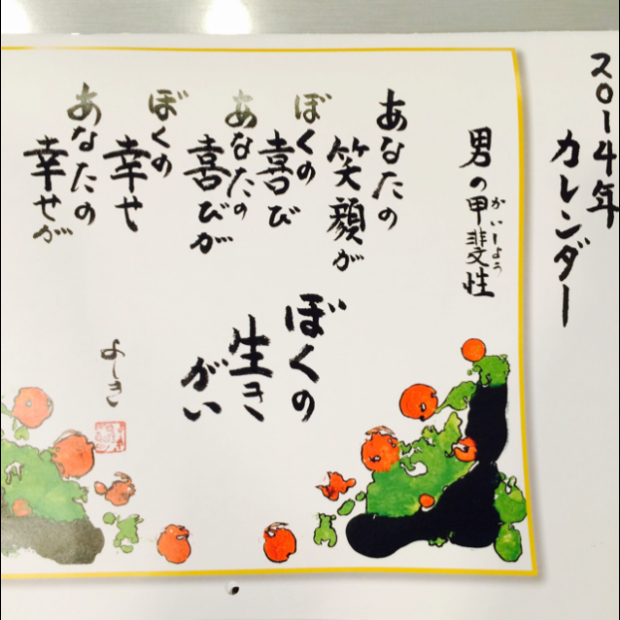 2014年
カレンダー
男の甲斐性
かいしょう
あなたの
笑顔が
ぼくの
喜び
あなたの
喜びが
ぼくの
幸せ
あなたの
幸せが
ぼくの
生き
がい
よしき